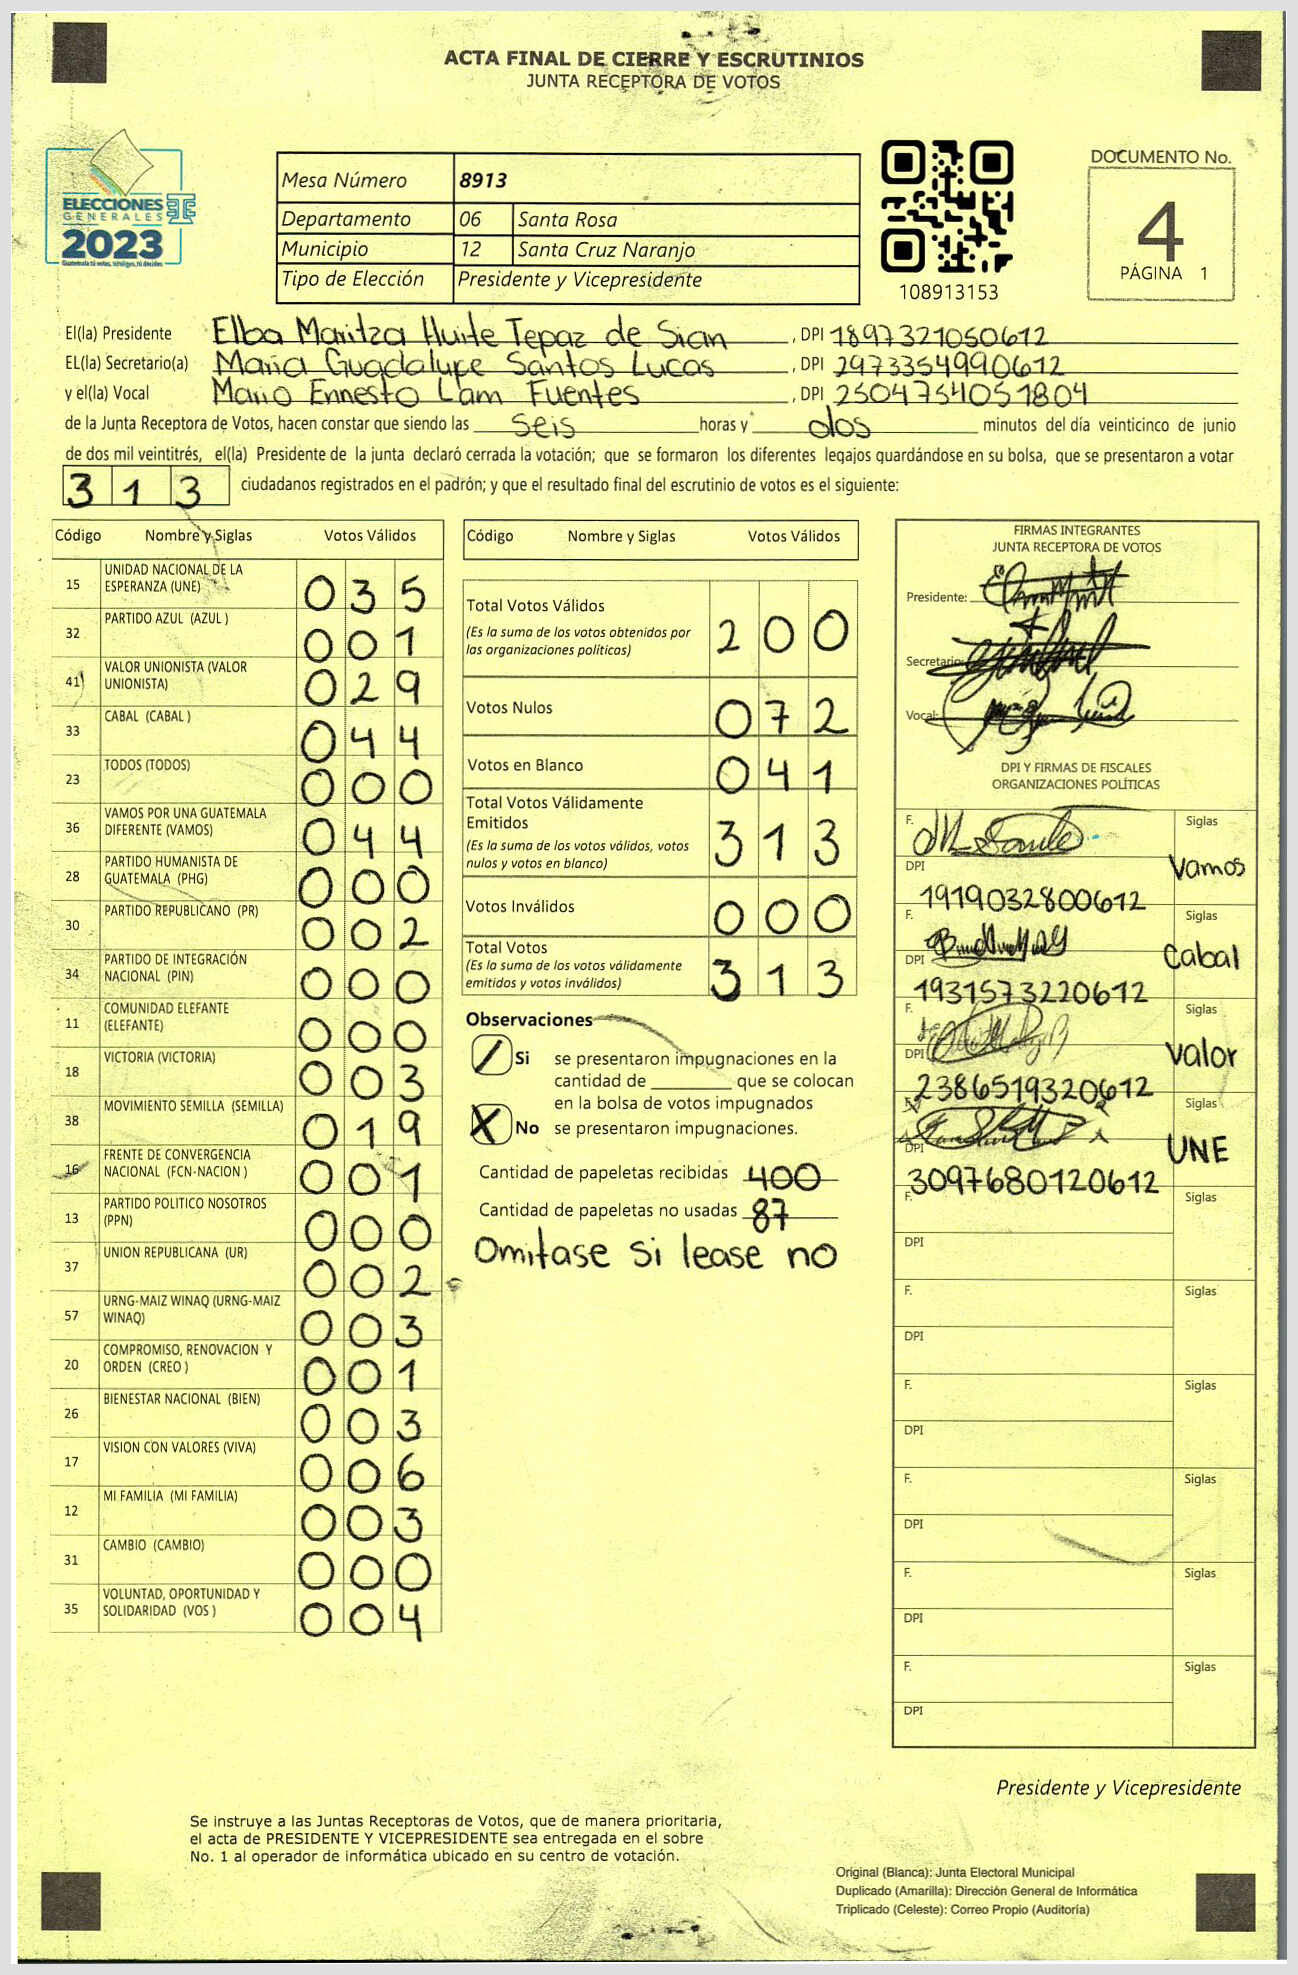 ACTA FINAL DE CIERRE Y ESCRUTINIOS
JUNTA RECEPTORA DE VOTOS
ELECCIONES
GENERALES
2023
Guatemala tú votas, tú eliges, tú decides
Mesa Número 8913
Departamento 06 Santa Rosa
Municipio 12 Santa Cruz Naranjo
Tipo de Elección Presidente y Vicepresidente
108913153
DOCUMENTO No.
4
PÁGINA 1
El(la) Presidente Elba Maritza Huite Tepaz de Sian , DPI 1897321050612
EL(la) Secretario(a) Maria Guadalupe Santos Lucas , DPI 2973354990612
y el(la) Vocal Mario Ennesto Lam Fuentes , DPI 2504754051804
de la Junta Receptora de Votos, hacen constar que siendo las seis horas y dos minutos del día veinticinco de junio
de dos mil veintitrés, el(la) Presidente de la junta declaró cerrada la votación; que se formaron los diferentes legajos quardándose en su bolsa, que se presentaron a votar
313 ciudadanos registrados en el padrón; y que el resultado final del escrutinio de votos es el siguiente:
Código Nombre y Siglas Votos Válidos
15 UNIDAD NACIONAL DE LA ESPERANZA (UNE) 035
32 PARTIDO AZUL (AZUL ) 001
41 VALOR UNIONISTA (VALOR UNIONISTA) 029
33 CABAL (CABAL ) 044
23 TODOS (TODOS) 000
36 VAMOS POR UNA GUATEMALA DIFERENTE (VAMOS) 044
28 PARTIDO HUMANISTA DE GUATEMALA (PHG) 000
30 PARTIDO REPUBLICANO (PR) 002
34 PARTIDO DE INTEGRACIÓN NACIONAL (PIN) 000
11 COMUNIDAD ELEFANTE (ELEFANTE) 000
18 VICTORIA (VICTORIA) 003
38 MOVIMIENTO SEMILLA (SEMILLA) 019
16 FRENTE DE CONVERGENCIA NACIONAL (FCN-NACION ) 001
13 PARTIDO POLITICO NOSOTROS (PPN) 000
37 UNION REPUBLICANA (UR) 002
57 URNG-MAIZ WINAQ (URNG-MAIZ WINAQ) 003
20 COMPROMISO, RENOVACION Y ORDEN (CREO ) 001
26 BIENESTAR NACIONAL (BIEN) 003
17 VISION CON VALORES (VIVA) 006
12 MI FAMILIA (MI FAMILIA) 003
31 CAMBIO (CAMBIO) 000
35 VOLUNTAD, OPORTUNIDAD Y SOLIDARIDAD (VOS ) 004
Código Nombre y Siglas Votos Válidos
Total Votos Válidos 200
(Es la suma de los votos obtenidos por
las organizaciones políticas)
Votos Nulos 072
Votos en Blanco 041
Total Votos Válidamente
Emitidos 313
(Es la suma de los votos válidos, votos
nulos y votos en blanco)
Votos Inválidos 000
Total Votos 313
(Es la suma de los votos válidamente
emitidos y votos inválidos)
Observaciones
Si se presentaron impugnaciones en la
cantidad de ________ que se colocan
en la bolsa de votos impugnados
X No se presentaron impugnaciones.
Cantidad de papeletas recibidas 400
Cantidad de papeletas no usadas 87
Omitase si lease no
FIRMAS INTEGRANTES
JUNTA RECEPTORA DE VOTOS
Presidente:
Secretario:
Vocal:
DPI Y FIRMAS DE FISCALES
ORGANIZACIONES POLÍTICAS
F. Siglas
Vamos
DPI 1919032800612
F. Siglas
Cabal
DPI 1931573220612
F. Siglas
Valor
DPI 2386519320612
F. Siglas
UNE
DPI 3097680120612
F. Siglas
DPI
F. Siglas
DPI
F. Siglas
DPI
F. Siglas
DPI
F. Siglas
DPI
F. Siglas
DPI
Presidente y Vicepresidente
Se instruye a las Juntas Receptoras de Votos, que de manera prioritaria,
el acta de PRESIDENTE Y VICEPRESIDENTE sea entregada en el sobre
No. 1 al operador de informática ubicado en su centro de votación.
Original (Blanca): Junta Electoral Municipal
Duplicado (Amarilla): Dirección General de Informática
Triplicado (Celeste): Correo Propio (Auditoría)